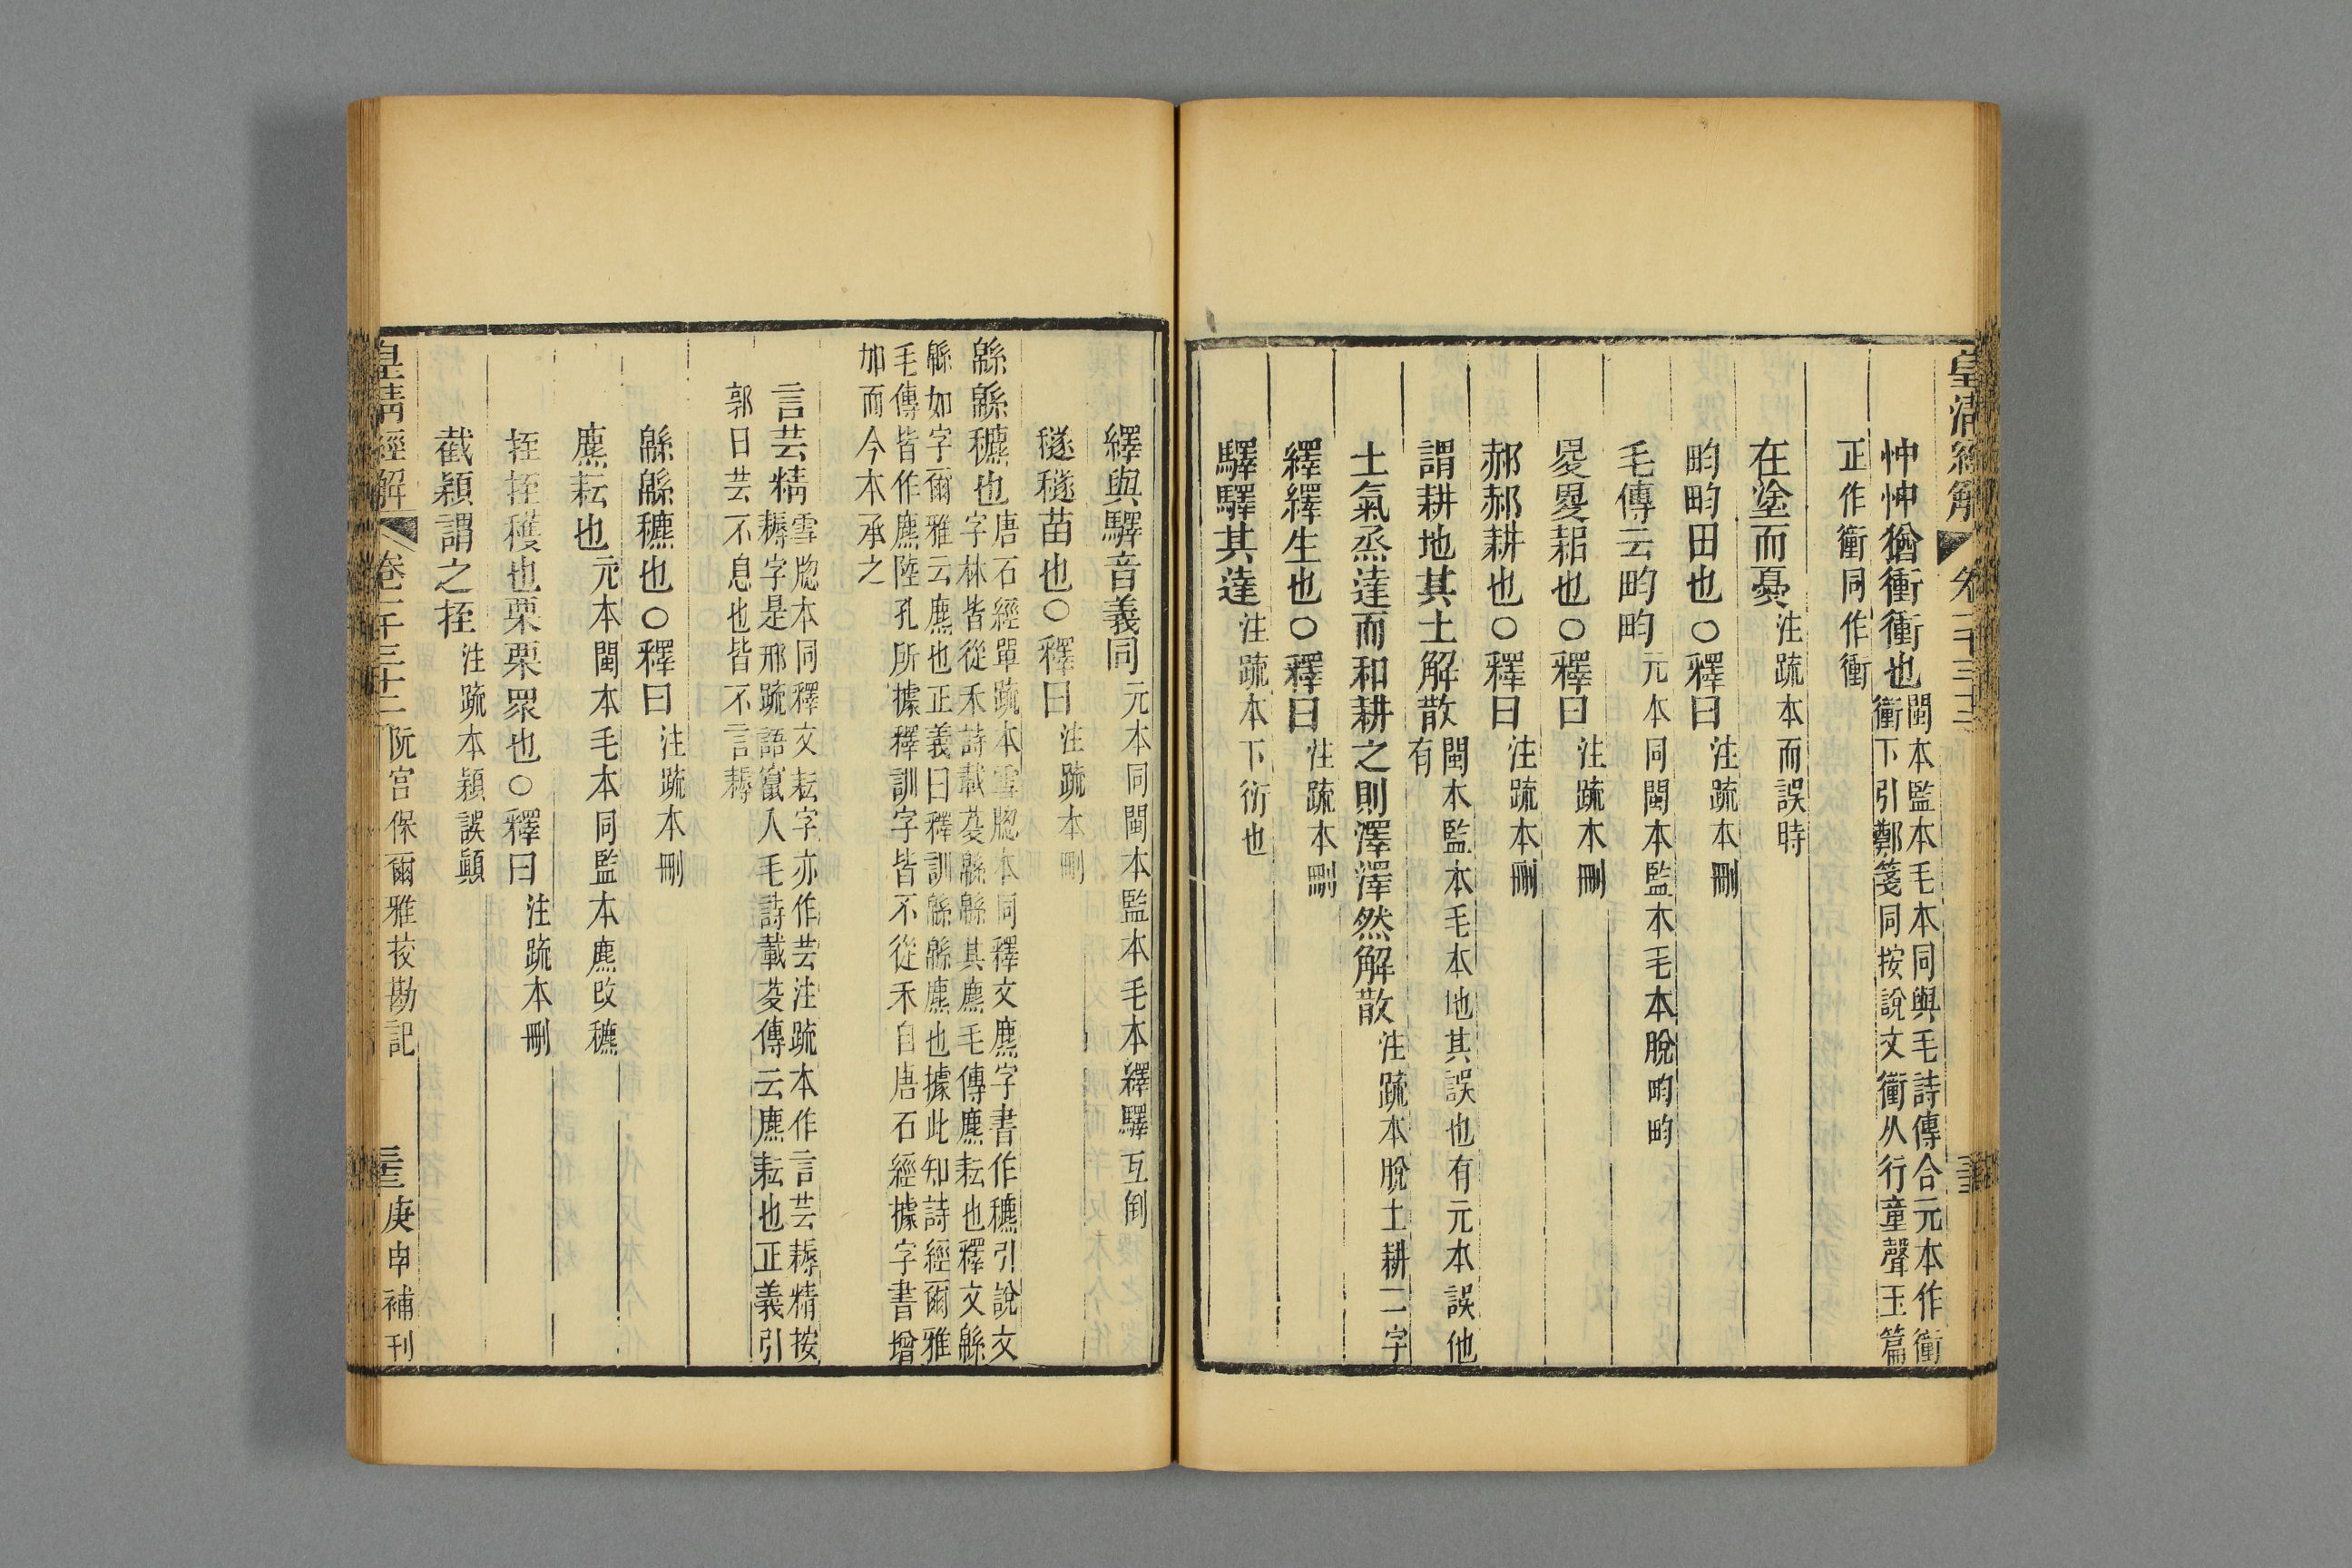 皇清經解 卷一千三十三
忡忡猶衝衝也閩本監本毛本同與毛詩傳合元本作衝
衝下引鄭箋同按說文衝从行童聲玉篇
正作衝同作衝
在塗而憂注疏本而誤時
畇畇田也○釋曰注疏本刪
毛傳云畇畇元本同閩本監本毛本脫畇畇
畟畟耜也○釋曰注疏本刪
郝郝耕也○釋曰注疏本刪
謂耕地其土解散閩本監本毛本地其誤也有元本誤他
有
土氣烝達而和耕之則澤澤然解散注疏本脫土耕二字
繹繹生也○釋曰注疏本刪
驛驛其達注疏本下衍也
繹與驛音義同元本同閩本監本毛本繹驛互倒
穟穟苗也○釋曰注疏本刪
緜緜穮也唐石經單疏本雪牕本同釋文麃字書作穮引說文
字林皆從禾詩載芟緜緜其麃毛傳麃耘也釋文緜
緜如字爾雅云麃也正義曰釋訓緜緜麃也據此知詩經爾雅
毛傳皆作麃陸孔所據釋訓字皆不從禾自唐石經據字書增
加而今本承之
言芸精雪牕本同釋文耘字亦作芸注疏本作言芸耨精按
耨字是邢疏語竄入毛詩載芟傳云麃耘也正義引
郭曰芸不息也皆不言耨
緜緜穮也○釋曰注疏本刪
麃耘也元本閩本毛本同監本麃改穮
挃挃穫也栗栗眾也○釋曰注疏本刪
截穎謂之挃注疏本穎誤顛
皇清經解 卷一千三十三 阮宮保爾雅挍勘記 庚申補刊